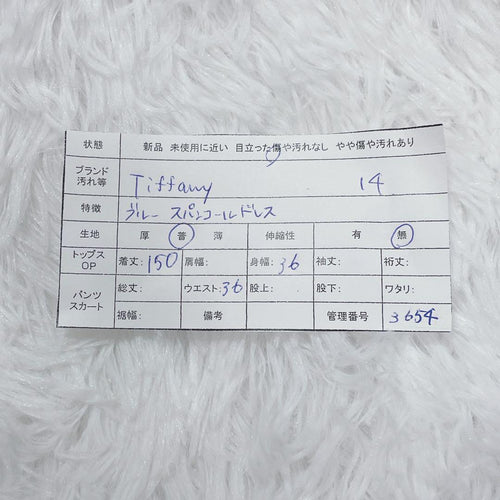 状態 新品 未使用に近い 目立った傷や汚れなし やや傷や汚れあり
ブランド
汚れ等 Tiffany 14
特徴 ブルー スパンコールドレス
生地 厚 普 薄 伸縮性 有 無
トップス
OP 着丈:150 肩幅: 身幅:36 袖丈: 裄丈:
パンツ
スカート 総丈: ウエスト:36 股上: 股下: ワタリ:
裾幅: 備考 管理番号 3654